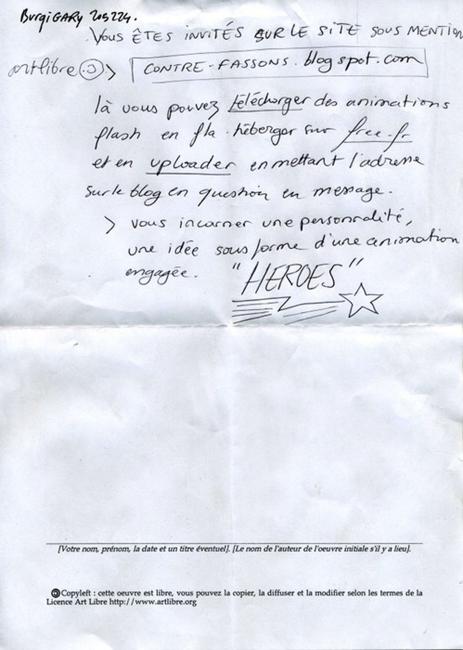 BurgiGARY 205224.
VOUS ÊTES INVITÉS SUR LE SITE SOUS MENTION
artlibre :) > CONTRE-FASSONS.blogspot.com
là vous pouvez télécharger des animations
flash en fla. héberger sur free.fr
et en uploader en mettant l'adresse
sur le blog en question en message.
> vous incarner une personnalité,
une idée sous forme d'une animation
engagée. "HEROES"
[Votre nom, prénom, la date et un titre éventuel]. [Le nom de l'auteur de l'oeuvre initiale s'il y a lieu].
Copyleft : cette oeuvre est libre, vous pouvez la copier, la diffuser et la modifier selon les termes de la
Licence Art Libre http://www.artlibre.org